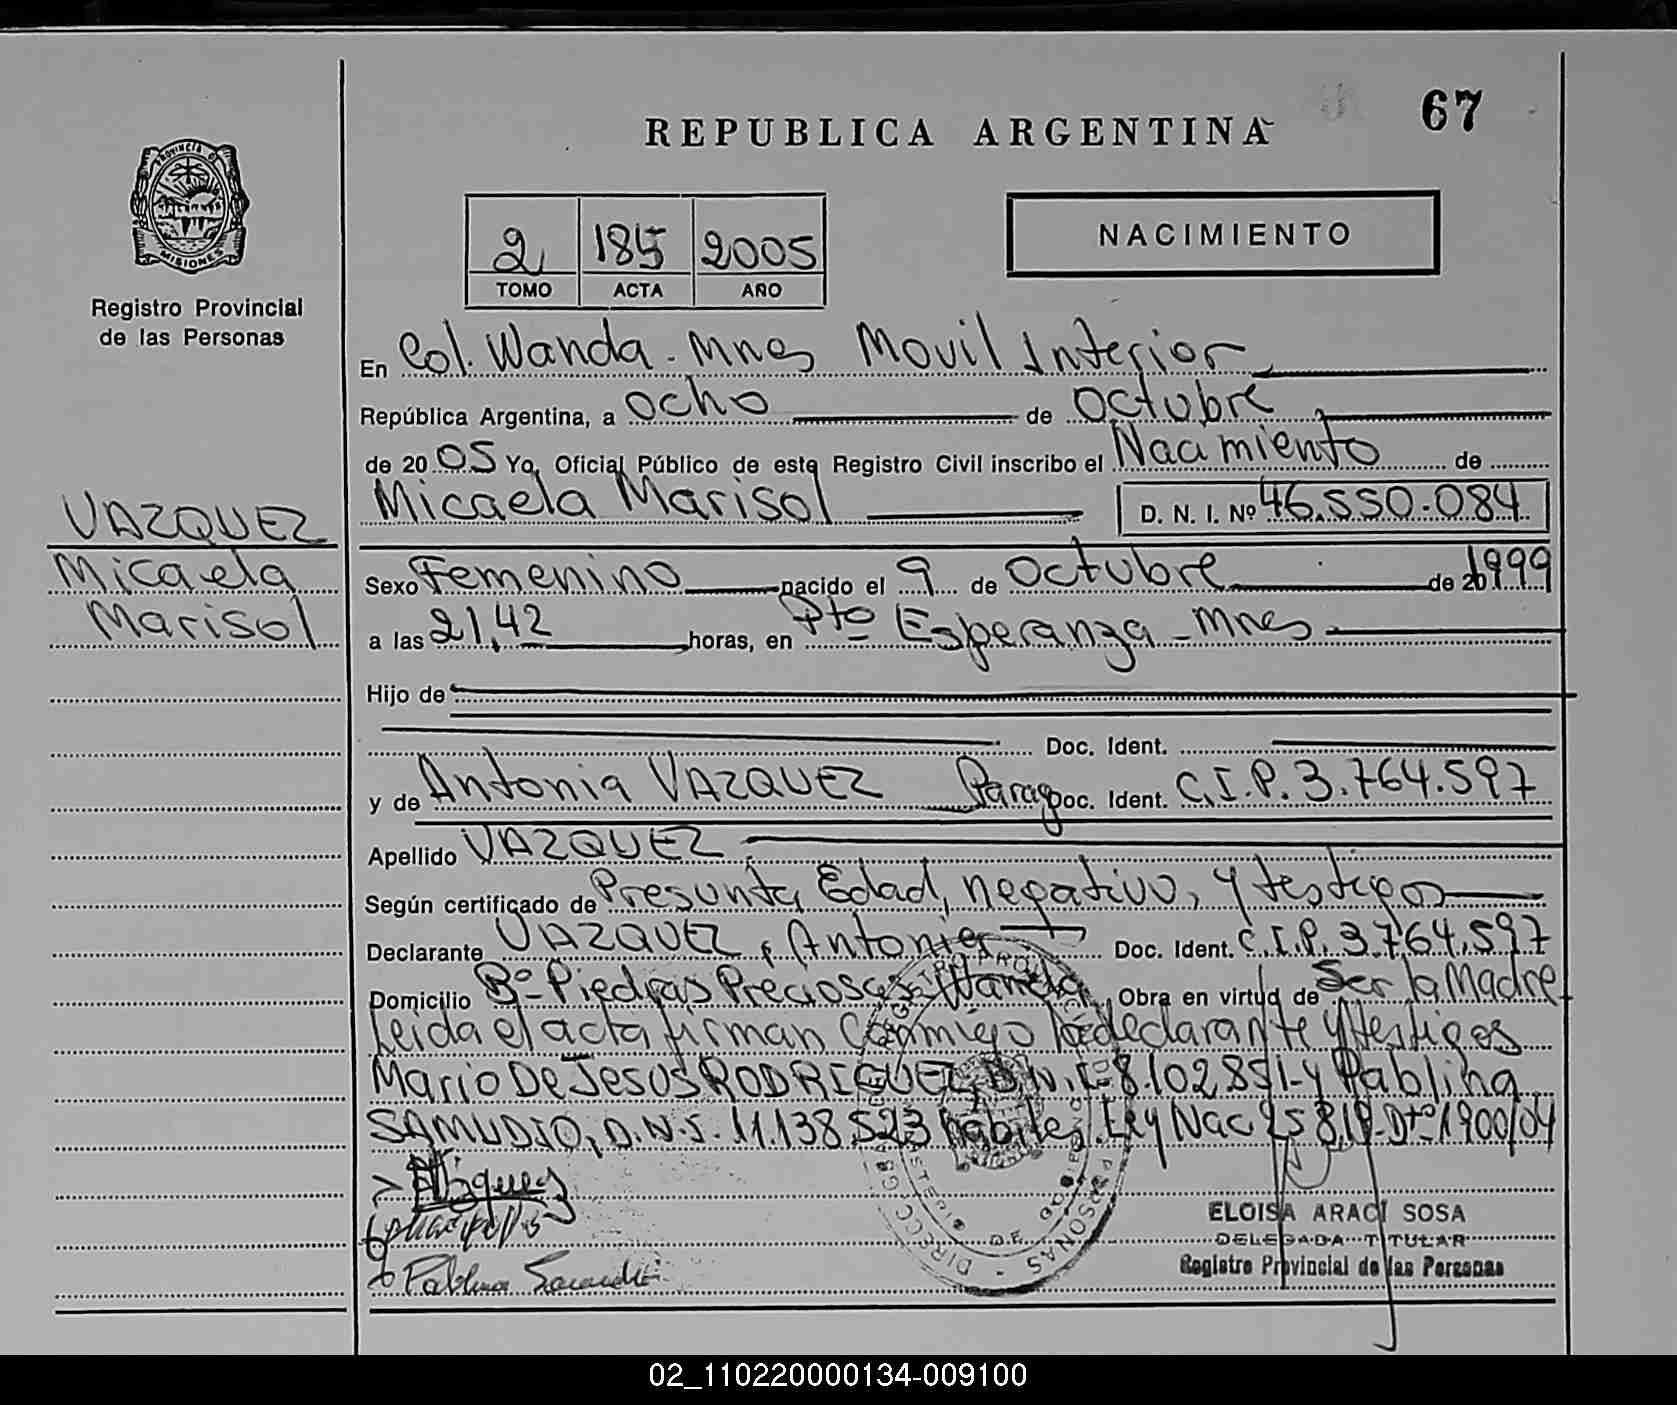 67
REPUBLICA ARGENTINA
PROVINCIA DE
MISIONES
Registro Provincial
de las Personas
2 185 2005
TOMO ACTA AÑO
NACIMIENTO
En Col. Wanda - Mnes Movil Interior
República Argentina, a ocho de Octubre
de 2005 Yo, Oficial Público de este Registro Civil inscribo el Nacimiento de
Micaela Marisol D. N. I. Nº 46.550.084
VAZQUEZ
Micaela
Marisol
Sexo Femenino nacido el 9 de Octubre de 1999
a las 21,42 horas, en Pto Esperanza - Mnes
Hijo de
Doc. Ident.
y de Antonia VAZQUEZ Parag Doc. Ident. C.I.P. 3.764.597
Apellido VAZQUEZ
Según certificado de Presunta Edad, negativo, y testigos
Declarante VAZQUEZ, Antonia Doc. Ident. C.I.P. 3.764.597
Domicilio Bº - Piedras Preciosas Wanda Obra en virtud de Ser la Madre
Leida el acta firman Conmigo la declarante y testigos
Mario De Jesus RODRIGUEZ D.N.I. 8.102.851 - y Pablina
SAMUDIO, D.N.I. 11.138.523 habiles. Ley Nac 25.819 - Dtº 1900/04
Pablina Samudio
ELOISA ARACI SOSA
DELEGADA TITULAR
Registro Provincial de las Personas
02_110220000134-009100